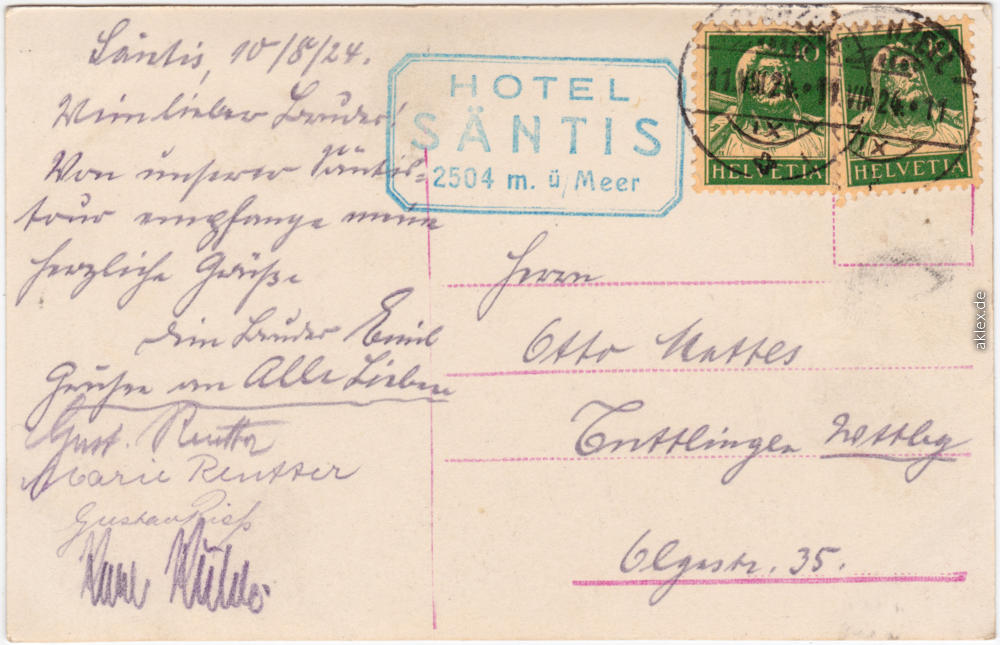 Säntis, 10/8/24.
Mein lieber Bruder!
Von unserer Säntis=
tour empfange meine
herzliche Grüße
dein Bruder Emil
Grüße an Alle Lieben
Gust. Reutter
Marie Reutter
Gustav Rieß
HOTEL
SÄNTIS
2504 m. ü/Meer
10
HELVETIA
HELVETIA
11.VIII.24.11
VIII.24.11
IX
IX
Herrn
Otto Mattes
Tuttlingen Wttbg
Olgastr. 35.
aklex.de